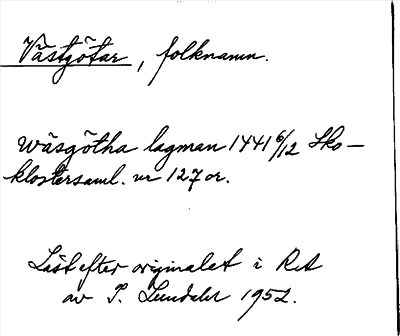 Västgötar, folknamn.
wäsgötha lagman 1441 6/12 Sko-
klostersaml. nr 127 or.
Läst efter originalet i RA
av P. Lundahl 1952.